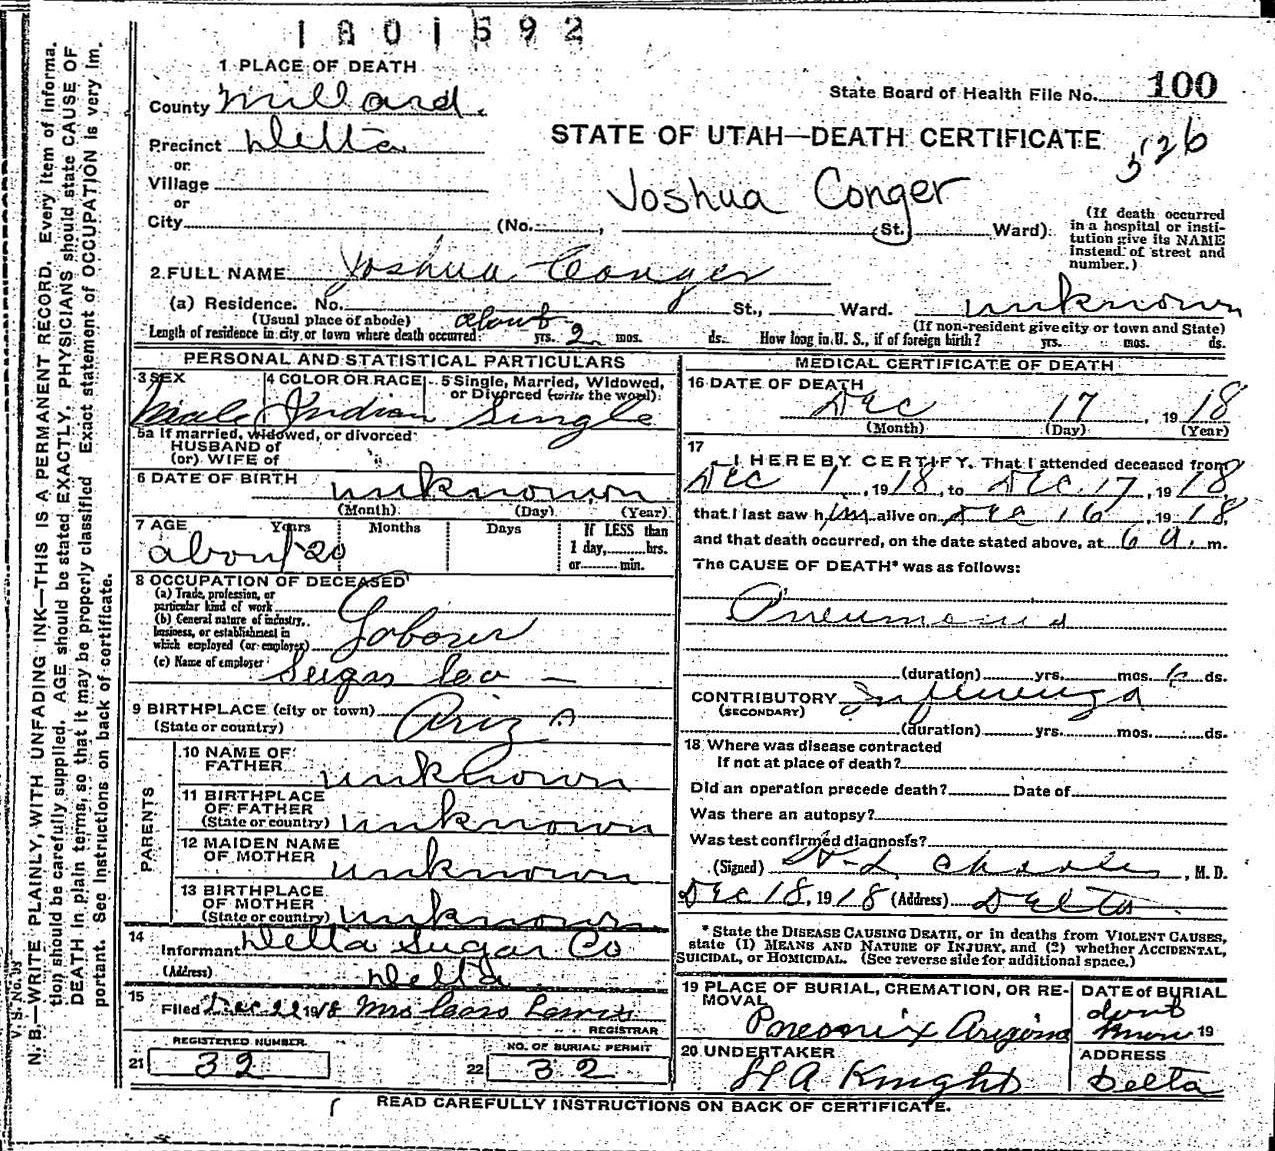 1801592
1 PLACE OF DEATH
County Millard.
State Board of Health File No. 100
Precinct Delta
STATE OF UTAH—DEATH CERTIFICATE
526
or
Village
Joshua Conger
or
City (No. , St. Ward)
(If death occurred in a hospital or institution give its NAME instead of street and number.)
2 FULL NAME Joshua Conger
(a) Residence. No. St., Ward. unknown
(Usual place of abode) (If non-resident give city or town and State)
Length of residence in city or town where death occurred about yrs. 2 mos. ds. How long in U. S., if of foreign birth? yrs. mos. ds.
PERSONAL AND STATISTICAL PARTICULARS
3 SEX 4 COLOR OR RACE 5 Single, Married, Widowed, or Divorced (write the word)
Male Indian Single
5a If married, widowed, or divorced
HUSBAND of
(or) WIFE of
6 DATE OF BIRTH unknown
(Month) (Day) (Year)
7 AGE Years Months Days If LESS than
1 day, hrs.
or min.
about 20
8 OCCUPATION OF DECEASED
(a) Trade, profession, or
particular kind of work
(b) General nature of industry,
business, or establishment in
which employed (or employer) Laborer
(c) Name of employer Sugar Co —
9 BIRTHPLACE (city or town)
(State or country) Ariz
PARENTS
10 NAME OF FATHER unknown
11 BIRTHPLACE OF FATHER
(State or country) unknown
12 MAIDEN NAME OF MOTHER unknown
13 BIRTHPLACE OF MOTHER
(State or country) unknown
14 Informant Delta Sugar Co
(Address) Delta
15 Filed Dec 21 1918 Mrs Lewis
REGISTRAR
REGISTERED NUMBER
21 32
NO. OF BURIAL PERMIT
22 32
MEDICAL CERTIFICATE OF DEATH
16 DATE OF DEATH
Dec 17 , 1918
(Month) (Day) (Year)
17
I HEREBY CERTIFY, That I attended deceased from
Dec 1, 1918, to Dec. 17, 1918
that I last saw him alive on Dec 16, 1918,
and that death occurred, on the date stated above, at 6 a. m.
The CAUSE OF DEATH* was as follows:
Pneumonia
(duration) yrs. mos. 6 ds.
CONTRIBUTORY Influenza
(SECONDARY)
(duration) yrs. mos. ds.
18 Where was disease contracted
If not at place of death?
Did an operation precede death? Date of
Was there an autopsy?
Was test confirmed diagnosis?
(Signed) , M. D.
Dec 18, 1918 (Address) Delta
* State the DISEASE CAUSING DEATH, or in deaths from VIOLENT CAUSES,
state (1) MEANS AND NATURE OF INJURY, and (2) whether ACCIDENTAL,
SUICIDAL, or HOMICIDAL. (See reverse side for additional space.)
19 PLACE OF BURIAL, CREMATION, OR REMOVAL
Pneonix Arizona
DATE of BURIAL
dont know 19
20 UNDERTAKER
H A Knight
ADDRESS
Delta
READ CAREFULLY INSTRUCTIONS ON BACK OF CERTIFICATE.
V. S. No.
N. B.—WRITE PLAINLY, WITH UNFADING INK—THIS IS A PERMANENT RECORD. Every item of informa-
tion should be carefully supplied. AGE should be stated EXACTLY. PHYSICIANS should state CAUSE OF
DEATH in plain terms, so that it may be properly classified. Exact statement of OCCUPATION is very im-
portant. See instructions on back of certificate.